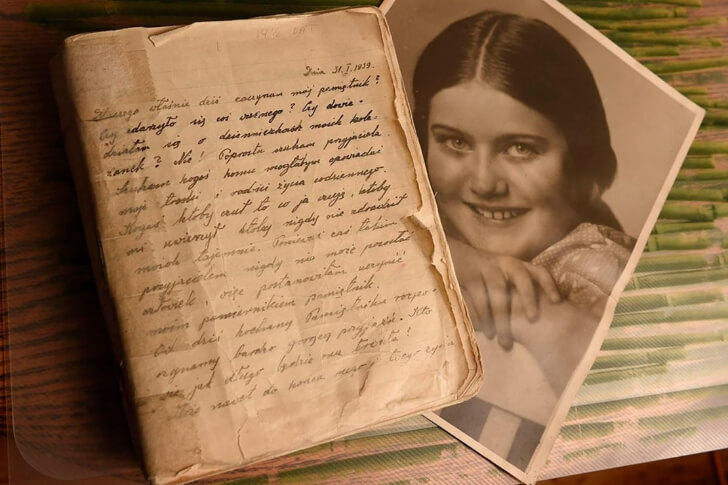 Dnia 31.I.1939.
Dlaczego właśnie dziś zaczynam mój pamiętnik?
Czy zdarzyło się coś ważnego? Czy dowie-
działam się o dzienniczkach moich kole-
żanek? Nie! Poprostu szukam przyjaciela.
Szukam kogoś komu mogłabym opowiadać
moje troski i radości życia codziennego.
Kogoś ktoby czuł to co ja czuję, ktoby
mi uwierzył ktoby nigdy nie zdradził
moich tajemnic. Ponieważ zaś takim
przyjacielem nigdy nie może pozostać
człowiek, więc postanowiłam uczynić
moim powiernikiem pamiętnik.
Od dziś kochany Pamiętniku rozpo-
czynamy bardzo gorącą przyjaźń. Kto
wie jak długo będzie ona trwała?
Może nawet do końca mego życia